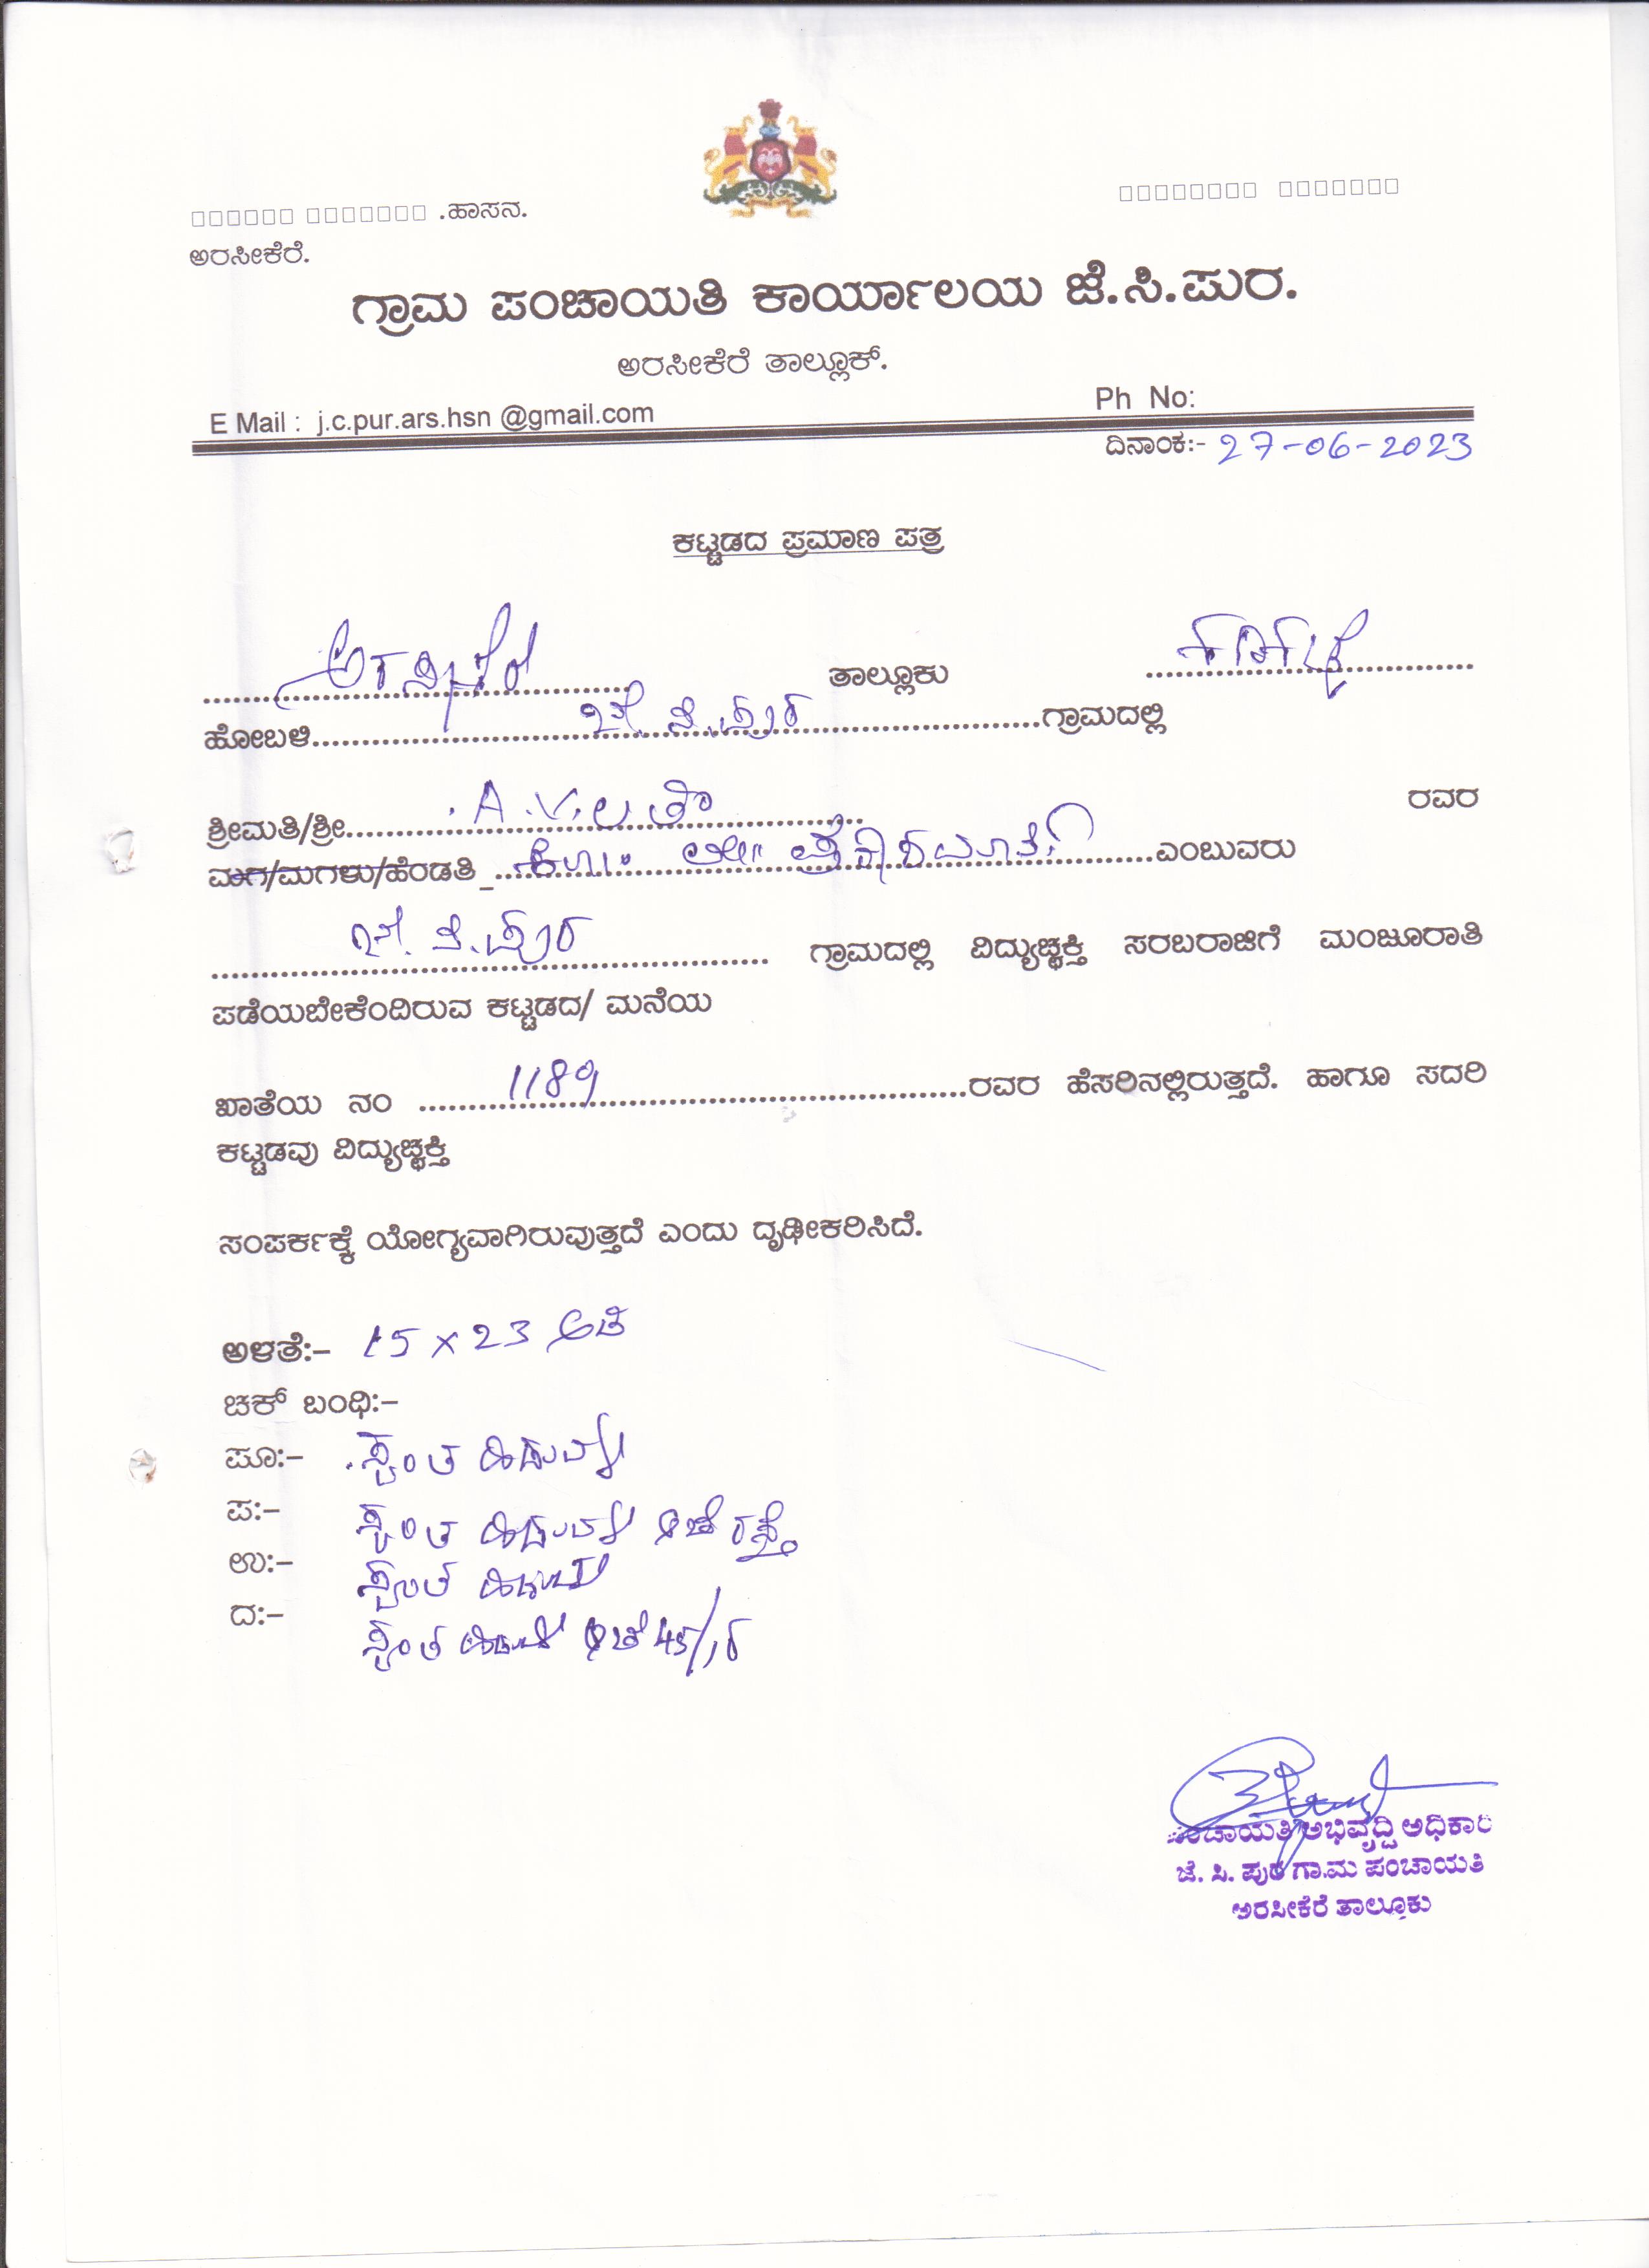 .ಹಾಸನ.
ಅರಸೀಕೆರೆ.
ಗ್ರಾಮ ಪಂಚಾಯತಿ ಕಾರ್ಯಾಲಯ ಜೆ.ಸಿ.ಪುರ.
ಅರಸೀಕೆರೆ ತಾಲ್ಲೂಕ್.
E Mail : j.c.pur.ars.hsn @gmail.com Ph No:
ದಿನಾಂಕ:- 27-06-2023
ಕಟ್ಟಡದ ಪ್ರಮಾಣ ಪತ್ರ
ಅರಸೀಕೆರೆ ತಾಲ್ಲೂಕು ಕಸಬಾ
ಹೋಬಳಿ ಜೆ.ಸಿ.ಪುರ ಗ್ರಾಮದಲ್ಲಿ
ಶ್ರೀಮತಿ/ಶ್ರೀ. A.V.ಲತಾ ರವರ
ಮಗ/ಮಗಳು/ಹೆಂಡತಿ ಕೋಂ ಎಂಬುವರು
ಜೆ.ಸಿ.ಪುರ ಗ್ರಾಮದಲ್ಲಿ ವಿದ್ಯುಚ್ಛಕ್ತಿ ಸರಬರಾಜಿಗೆ ಮಂಜೂರಾತಿ
ಪಡೆಯಬೇಕೆಂದಿರುವ ಕಟ್ಟಡದ/ ಮನೆಯ
ಖಾತೆಯ ನಂ 1189 ರವರ ಹೆಸರಿನಲ್ಲಿರುತ್ತದೆ. ಹಾಗೂ ಸದರಿ
ಕಟ್ಟಡವು ವಿದ್ಯುಚ್ಛಕ್ತಿ
ಸಂಪರ್ಕಕ್ಕೆ ಯೋಗ್ಯವಾಗಿರುವುತ್ತದೆ ಎಂದು ದೃಢೀಕರಿಸಿದೆ.
ಅಳತೆ:- 15 x 23 ಅಡಿ
ಚಕ್ ಬಂಧಿ:-
ಪೂ:- ಸ್ವಂತ ಹಿಡುವಳಿ
ಪ:- ಸ್ವಂತ ಹಿಡುವಳಿ ರಸ್ತೆ
ಉ:- ಸ್ವಂತ ಹಿಡುವಳಿ
ದ:- ಸ್ವಂತ ಹಿಡುವಳಿ
ಪಂಚಾಯತಿ ಅಭಿವೃದ್ಧಿ ಅಧಿಕಾರಿ
ಜೆ. ಸಿ. ಪುರ ಗ್ರಾಮ ಪಂಚಾಯತಿ
ಅರಸೀಕೆರೆ ತಾಲ್ಲೂಕು